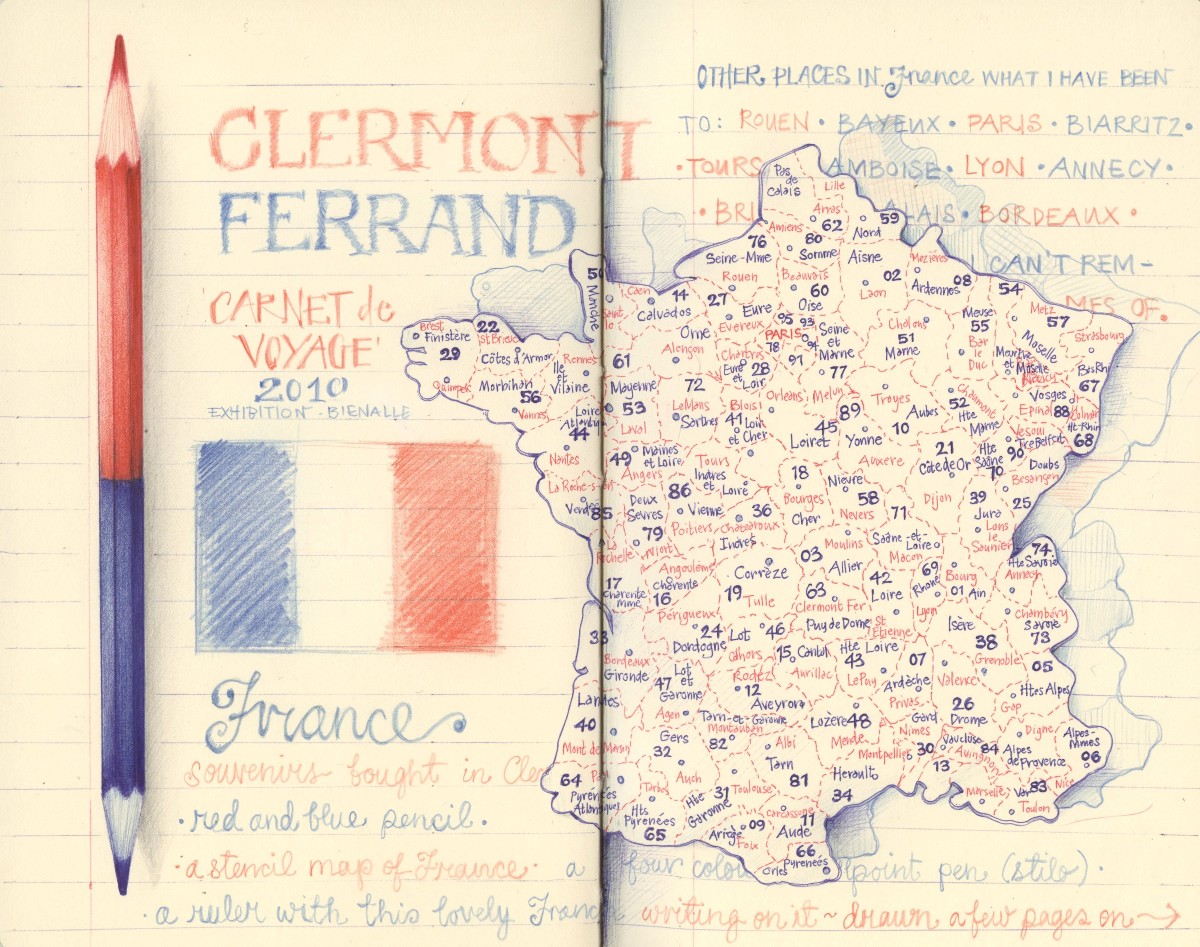 CLERMONT
FERRAND
'CARNET de
VOYAGE'
2010
EXHIBITION - BIENALLE
France
souvenirs bought in Cle
• red and blue pencil •
• a stencil map of France • a four colou point pen (stilo) •
• a ruler with this lovely French writing on it ~ drawn a few pages on →
OTHER PLACES IN France WHAT I HAVE BEEN
TO: ROUEN • BAYEUX • PARIS • BIARRITZ •
• TOURS AMBOISE • LYON • ANNECY •
• BRI ALAIS • BORDEAUX •
I CAN'T REM-
MES OF.
Pas de Calais
Lille
Arras
62
59
Nord
Amiens
80
Somme
76
Seine-Mme
Rouen
Beauvais
60
Oise
Aisne
02
Laon
Mezieres
08
Ardennes
54
50
Manche
Saint lo
Caen
14
Calvados
27
Eure
Evereux
Orne
Alençon
61
95
93
PARIS
78
94
91
Seine et Marne
77
Melun
Chalons
51
Marne
Meuse
55
Bar le Duc
Metz
57
Moselle
Meurthe et Moselle
Nancy
Strasbourg
Bas Rh
67
Brest
Finistère
29
Quimper
22
St Brieuc
Côtes d'Armor
Morbihan
56
Vannes
Rennes
Ile et Vilaine
Mayenne
53
Laval
72
LeMans
Sarthes
Chartres
Eure et Loir
28
Orleans
45
Loiret
Blois
41
Loir et Cher
89
Yonne
Auxere
Troyes
10
Aubes
52
Chaumont
Hte Marne
Vosges
Epinal
88
Colmar
Ht-Rhin
68
Loire Atlantiq
44
Nantes
49
Maines et Loire
Angers
Tours
Indres et Loire
La Roche-s-
Vendée
85
Deux Sevres
79
Niort
86
Vienne
Poitiers
Chateauroux
36
Indres
18
Bourges
Cher
Nievre
58
Nevers
21
Côte de Or
Dijon
Vesoul
Hte Saône
70
90
Tre Belfort
Doubs
Besançon
25
39
Jura
Lons le Saunier
71
Saône-et-Loire
Macon
La Rochelle
17
Charente mme
Angoulême
Charente
16
Corrèze
19
Tulle
03
Allier
Moulins
63
Clermont Fer
Puy de Dome
42
Loire
St Etienne
69
Rhone
Lyon
Bourg
01
Ain
74
Hte Savoie
Annecy
Chambéry
Savoie
73
Isère
38
Grenoble
33
Bordeaux
Gironde
Périgueux
24
Dordogne
Lot
46
Cahors
15
Cantal
Aurillac
Hte Loire
43
Le Puy
07
Ardèche
Privas
Valence
26
Drome
05
Htes Alpes
Gap
Landes
40
Mont de Marsan
47
Lot et Garonne
Agen
Tarn-et-Garonne
Montauban
82
Rodez
12
Aveyron
Lozère
48
Mende
Gard
Nîmes
30
Vaucluse
84
Avignon
Digne
Alpes de Provence
Alpes-Mmes
06
Nice
64
Pau
Pyrenées Atlantiques
Gers
32
Auch
Tarbes
Hts Pyrenées
65
Hte Garonne
31
Toulouse
Albi
Tarn
81
Montpellier
Herault
34
13
Marseille
Var
83
Toulon
Ariège
09
Foix
Carcassonne
11
Aude
66
Pyrenées Orles